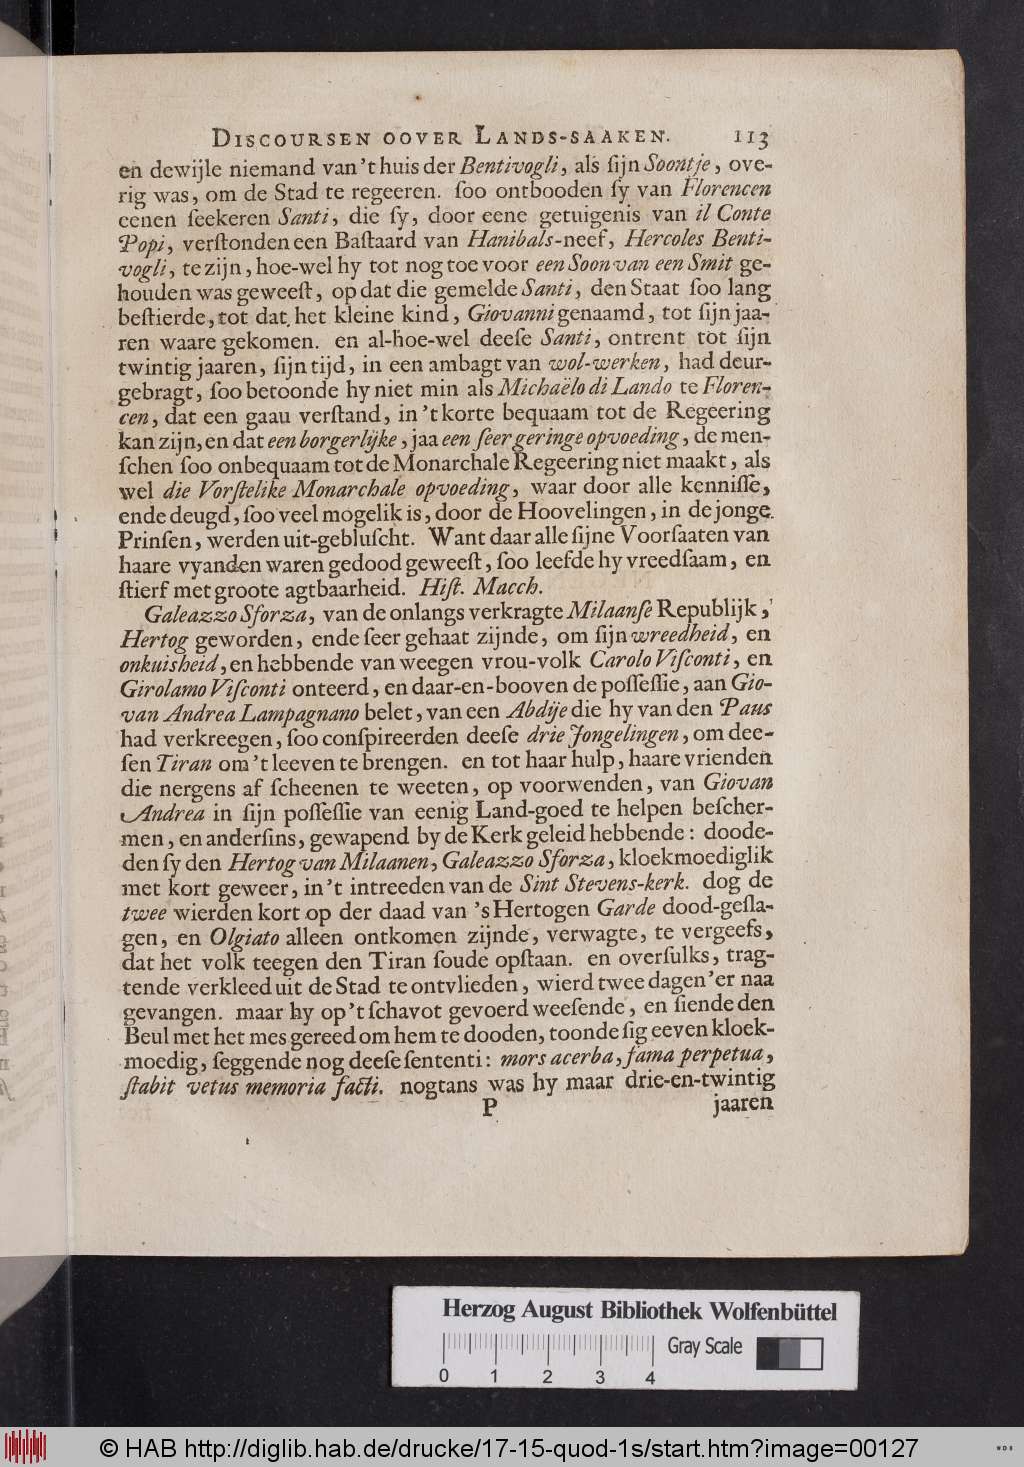 DISCOURSEN OOVER LANDS-SAAKEN. 113
en dewijle niemand van 't huis der Bentivogli, als ſijn Soontje, ove-
rig was, om de Stad te regeeren. ſoo ontbooden ſy van Florencen
eenen ſeekeren Santi, die ſy, door eene getuigenis van il Conte
Popi, verſtonden een Baſtaard van Hanibals-neef, Hercoles Benti-
vogli, te zijn, hoe-wel hy tot nog toe voor een Soon van een Smit ge-
houden was geweeſt, op dat die gemelde Santi, den Staat ſoo lang
beſtierde, tot dat het kleine kind, Giovanni genaamd, tot ſijn jaa-
ren waare gekomen. en al-hoe-wel deeſe Santi, ontrent tot ſijn
twintig jaaren, ſijn tijd, in een ambagt van wol-werken, had deur-
gebragt, ſoo betoonde hy niet min als Michaëlo di Lando te Floren-
cen, dat een gaau verſtand, in 't korte bequaam tot de Regeering
kan zijn, en dat een borgerlijke, jaa een ſeer geringe opvoeding, de men-
ſchen ſoo onbequaam tot de Monarchale Regeering niet maakt, als
wel die Vorſtelike Monarchale opvoeding, waar door alle kenniſſe,
ende deugd, ſoo veel mogelik is, door de Hoovelingen, in de jonge
Prinſen, werden uit-gebluſcht. Want daar alle ſijne Voorſaaten van
haare vyanden waren gedood geweeſt, ſoo leefde hy vreedſaam, en
ſtierf met groote agtbaarheid. Hiſt. Macch.
Galeazzo Sforza, van de onlangs verkragte Milaanſe Republijk,
Hertog geworden, ende ſeer gehaat zijnde, om ſijn wreedheid, en
onkuisheid, en hebbende van weegen vrou-volk Carolo Viſconti, en
Girolamo Viſconti onteerd, en daar-en-booven de poſſeſſie, aan Gio-
van Andrea Lampagnano belet, van een Abdije die hy van den Paus
had verkreegen, ſoo conſpireerden deeſe drie Jongelingen, om dee-
ſen Tiran om 't leeven te brengen. en tot haar hulp, haare vrienden
die nergens af ſcheenen te weeten, op voorwenden, van Giovan
Andrea in ſijn poſſeſſie van eenig Land-goed te helpen beſcher-
men, en anderſins, gewapend by de Kerk geleid hebbende: doode-
den ſy den Hertog van Milaanen, Galeazzo Sforza, kloekmoediglik
met kort geweer, in 't intreeden van de Sint Stevens-kerk. dog de
twee wierden kort op der daad van 's Hertogen Garde dood-geſla-
gen, en Olgiato alleen ontkomen zijnde, verwagte, te vergeefs,
dat het volk teegen den Tiran ſoude opſtaan. en overſulks, trag-
tende verkleed uit de Stad te ontvlieden, wierd twee dagen 'er naa
gevangen. maar hy op 't ſchavot gevoerd weeſende, en ſiende den
Beul met het mes gereed om hem te dooden, toonde ſig eeven kloek-
moedig, ſeggende nog deeſe ſententi: mors acerba, fama perpetua,
ſtabit vetus memoria facti. nogtans was hy maar drie-en-twintig
P jaaren
Herzog August Bibliothek Wolfenbüttel
Gray Scale
0 1 2 3 4
© HAB http://diglib.hab.de/drucke/17-15-quod-1s/start.htm?image=00127
WDB